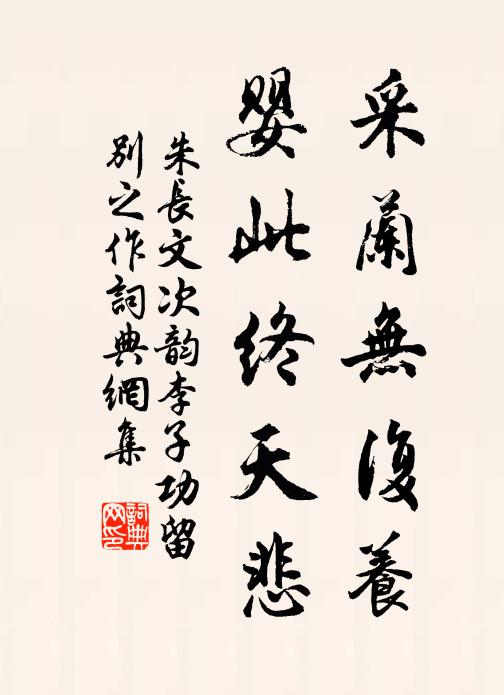 采蘭無復養
嬰此終天悲
朱長文次韵李子功留
別之作詞典網集
詞典
网印